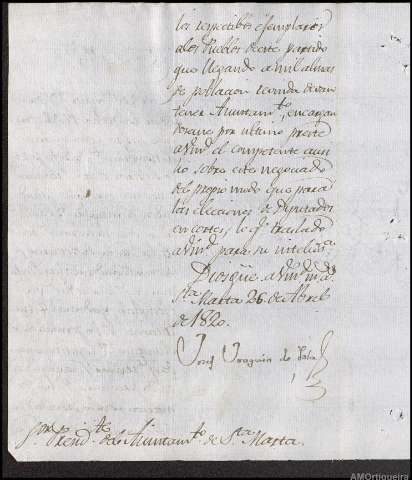 los respectibos exemplares
a los Pueblos de este partido
que llegando a mil almas
de poblacion reunida devan
tener Aiuntamto, encargan
dosene por ultimo preste
a Vmd el competente auxi
lio sobre este negociado
del propio modo que para
las elecciones de Diputados
en cortes, lo qe traslado
a Vmd para su inteliga.
Dios gue. a Vmd ms as
Sta Marta 26 de Abril
de 1820.
Josef Joaquin de
Sor Presidte de el Aiuntamto de Sta Marta.
AMOrtigueira